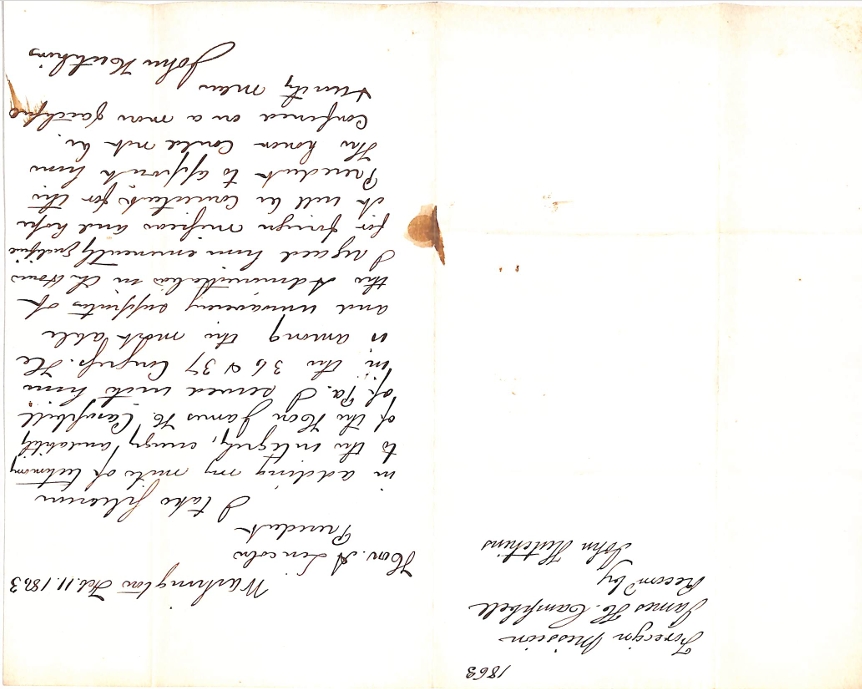 1863
Foreign Mission
James H. Campbell
Recomd by
John Hutchins
Washington Feb. 11. 1863
Hon. A Lincoln
President
I take pleasure
in adding my mite of testimony
to the integrity, energy and ability
of the Hon James H. Campbell
of Pa. I served with him
in the 36 & 37 Congress. He
is among the most able
and unwavering supporters of
the Administration in the House
I regard him eminently qualified
for foreign mission and hope
it will be consistent for the
President to appoint him
The honor could not be
conferred on a more faithful
& worthy man
John Hutchins